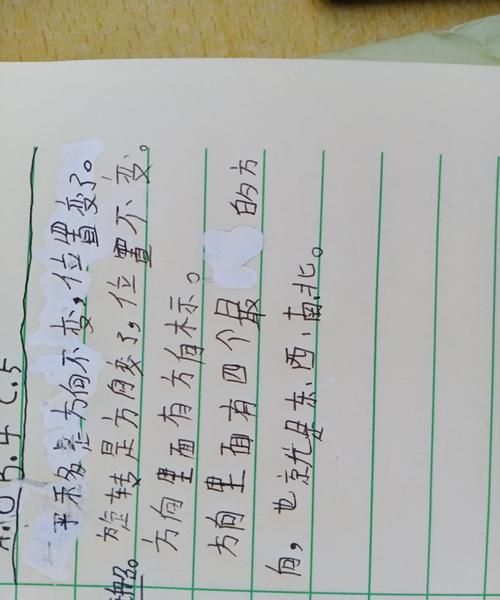 A.0 B.4 C.5
平移是方向不变，位置变了。
旋转是方向变了，位置不变。
方向里面有方向标。
方向里面有四个最 的方
向，也就是东、西、南、北。